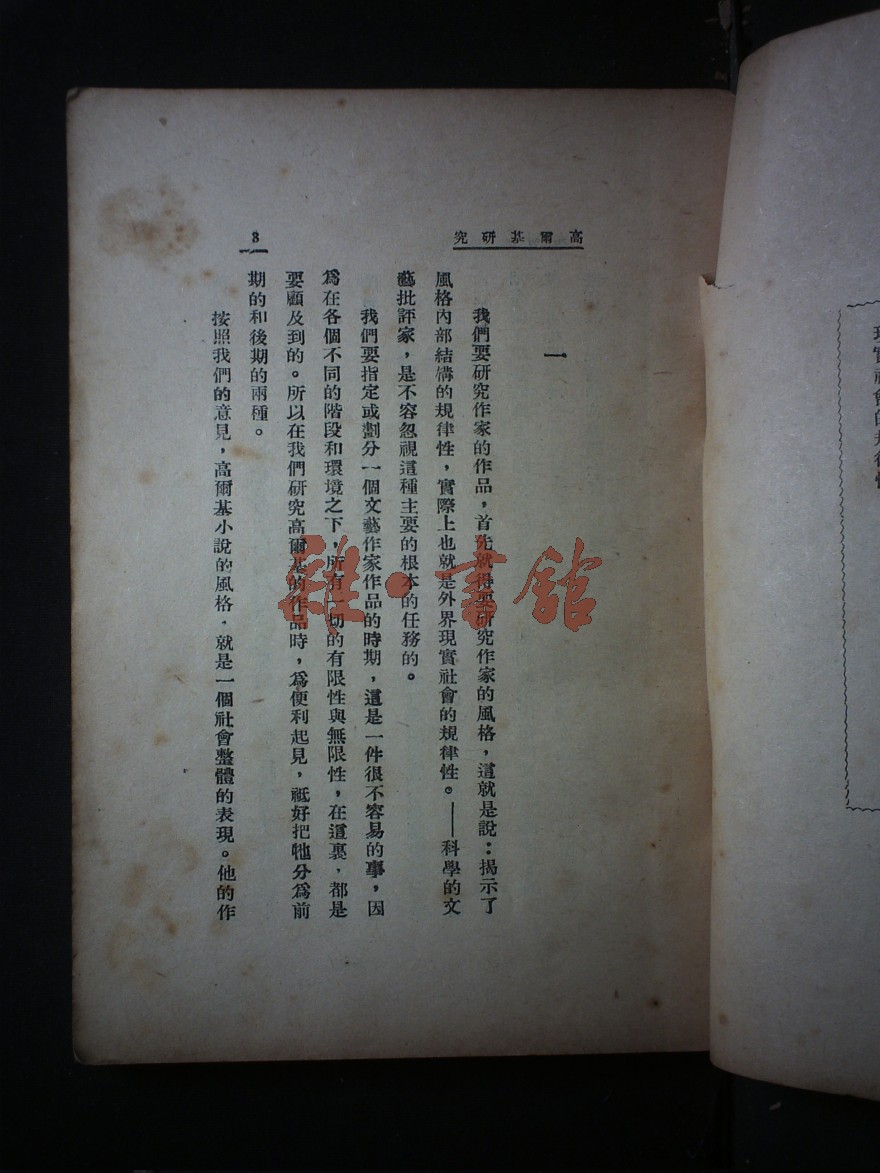 高爾基研究
8
一
我們要研究作家的作品，首先就得要研究作家的風格，這就是說：揭示了
風格內部結構的規律性，實際上也就是外界現實社會的規律性。——科學的文
藝批評家，是不容忽視這種主要的根本的任務的。
我們要指定或劃分一個文藝作家作品的時期，這是一件很不容易的事，因
爲在各個不同的階段和環境之下，所有一切的有限性與無限性，在這裏，都是
要顧及到的。所以在我們研究高爾基的作品時，爲便利起見，祇好把牠分爲前
期的和後期的兩種。
按照我們的意見，高爾基小說的風格，就是一個社會整體的表現。他的作
雜·書館
現實社會的規律性